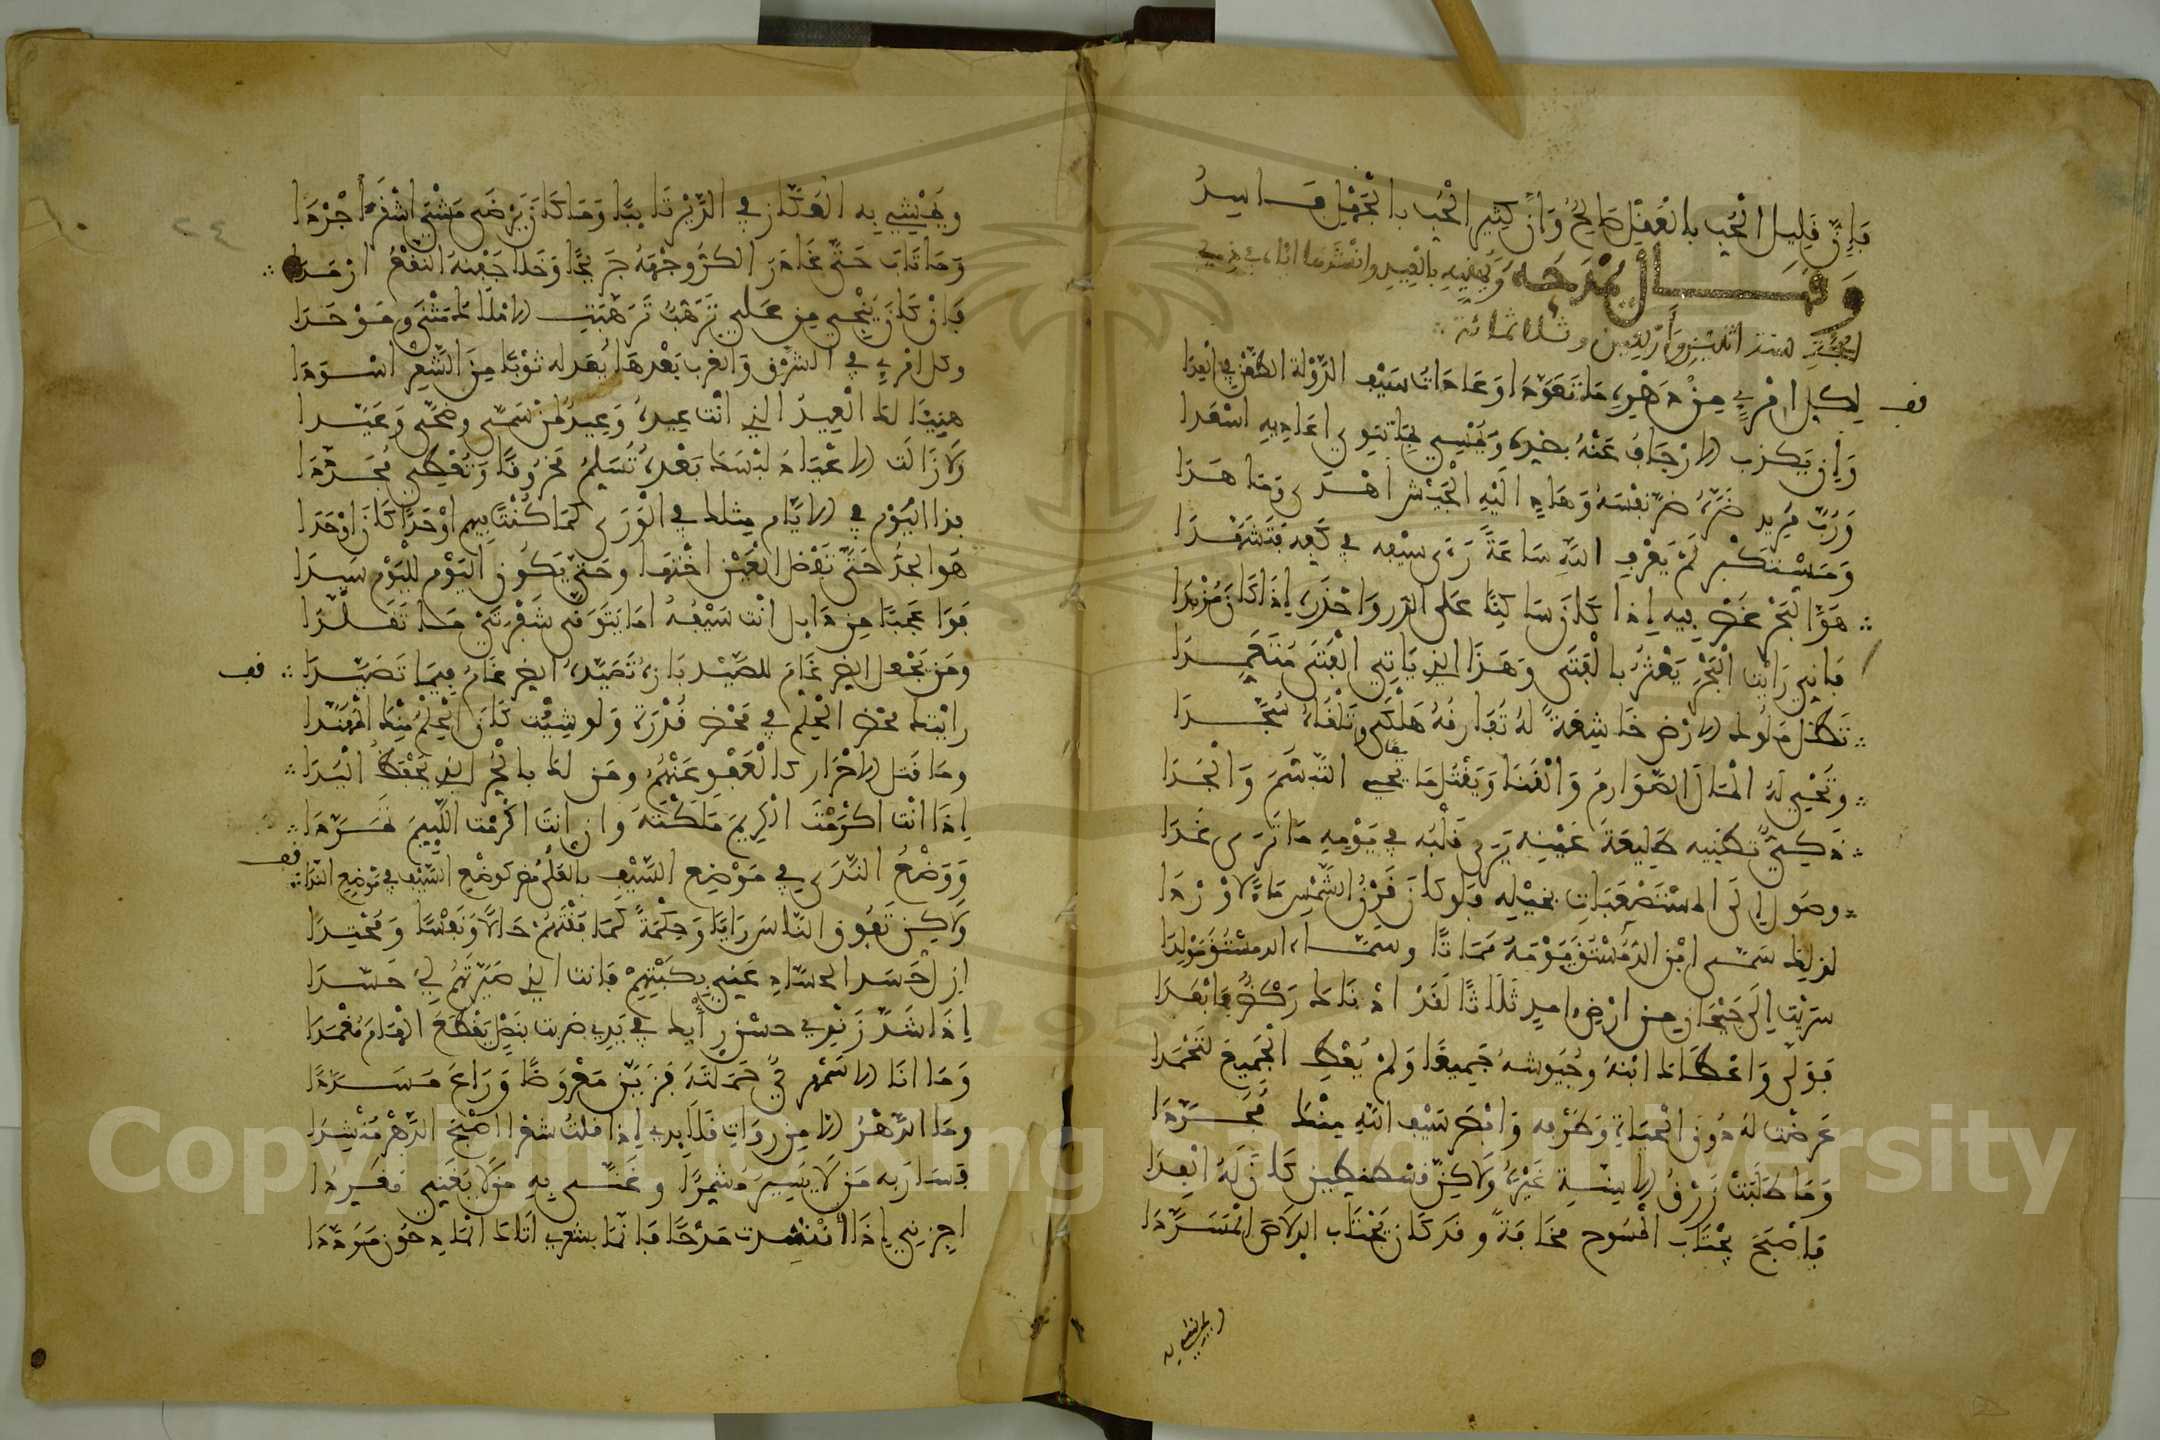 فإن قليل الحب بالعقل صالح وإن كثير الحب بالجهل فاسد
وقال يمدحه ويهنيه بالعيد وانشدها اياه في ذي
الحجة سنة اثنين وأربعين وثلاثمائة
قف
لكل امرئ من دهره ما تعودا وعادات سيف الدولة الطعن في العدا
وان يكذب الارجاف عنه بضده ويمسي بما تنوي اعاديه اسعدا
ورب مريد ضره ضر نفسه وهاد اليه الجيش اهدى وما هدا
ومستكبر لم يعرف الله ساعة رءى سيفه في كفه فتشهدا
هو البحر غص فيه اذا كان ساكنا على الدر واحذره اذا كان مزبدا
فاني رايت البحر يعثر بالفتى وهذا الذي ياتي الفتى متعمدا
تظل ملوك الارض خاشعة له تفارقه هلكى وتلقاه سجدا
وتحيي له المال الصوارم والقنا ويقتل ما يحيي التبسم والجدا
ذكي تظنيه طليعة عينه يرى قلبه في يومه ما ترى غدا
وصول الى المستصعبات بخيله فلو كان قرن الشمس ماء لاوردا
لذلك سمى ابن الدمستق يومه مماتا وسماه الدمستق مولدا
سريت الى جيحان من ارض امد ثلاثا لقد ادناك ركض وابعدا
فولى واعطاك ابنه وجيوشه جميعا ولم يعط الجميع لتحمدا
عرضت له دون الحياة وطرفه وابصر سيف الله منك مجردا
وما طلبت زرق الاسنة غيره ولاكن قسطنطين كان له الفدا
فاصبح يجتاب المسوح مخافة وقد كان يجتاب الدلاص المسردا
٢٤
ويمشي به العكاز في الدير تائبا وما كان يرضى مشي اشقر أجردا
وما تاب حتى غادر الكر وجهه جريحا وخلا جفنه النقع ارمدا
فان كان ينجي من علي ترهب ترهبت الاملاك مثنى وموحدا
وكل امرئ في الشرق والغرب بعدها يعد له ثوبا من الشعر اسودا
هنيئا لك العيد الذي انت عيده وعيد لمن سمى وضحى وعيدا
ولا زالت الاعياد لبسك بعده تسلم مخروقا وتعطى مجددا
فذا اليوم في الايام مثلك في الورى كما كنت فيهم اوحدا كان اوحدا
هو الجد حتى تفضل العين اختها وحتى يكون اليوم لليوم سيدا
فوا عجبا من دايل انت سيفه اما يتوقى شفرتي ما تقلدا
ومن يجعل الضرغام للصيد بازه تصيده الضرغام فيما تصيدا
قف
رايتك محض الحلم في محض قدرة ولو شئت كان الحلم منك المهندا
وما قتل الاحرار كالعفو عنهم ومن لك بالحر الذي يحفظ اليدا
اذا انت اكرمت الكريم ملكته وان انت اكرمت اللئيم تمردا
قف
ووضع الندى في موضع السيف بالعلى مضر كوضع السيف في موضع الندا
ولاكن تفوق الناس رايا وحكمة كما فقتهم حالا ونفسا ومحتدا
ازل حسد الحساد عني بكبتهم فانت الذي صيرتهم لي حسدا
اذا شد زندي حسن رأيك في يدي ضربت بنصل يقطع الهام مغمدا
وما انا الا سمهري حملته فزين معروضا وراع مسددا
وما الدهر الا من رواة قلايدي اذا قلت شعرا اصبح الدهر منشدا
فسار به من لا يسير مشمرا وغنى به من لا يغني مغردا
اجزني اذا أنشدت مدحا فانما بشعري اتاك المادحون مرددا